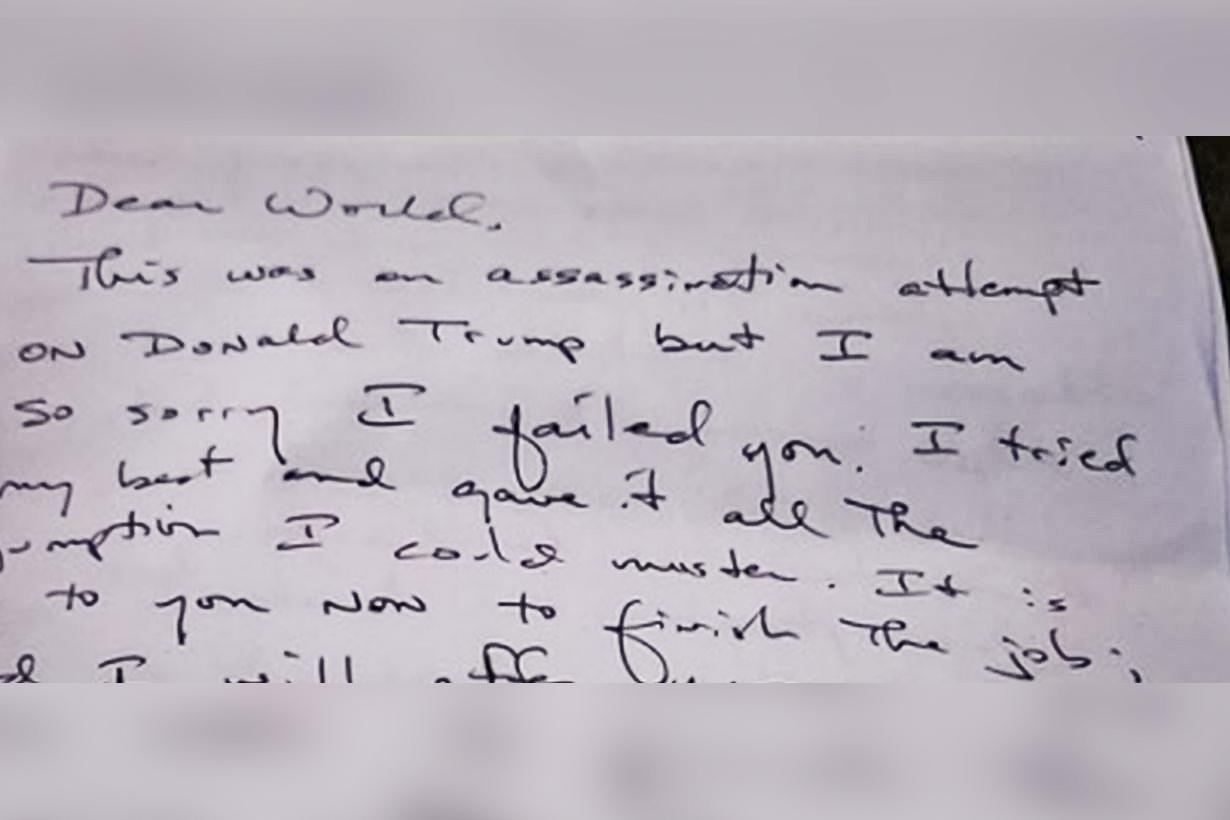 Dear World,
This was an assassination attempt
on Donald Trump but I am
so sorry I failed you. I tried
my best and gave it all the
umption I could muster. It is
to you now to finish the job;
I will